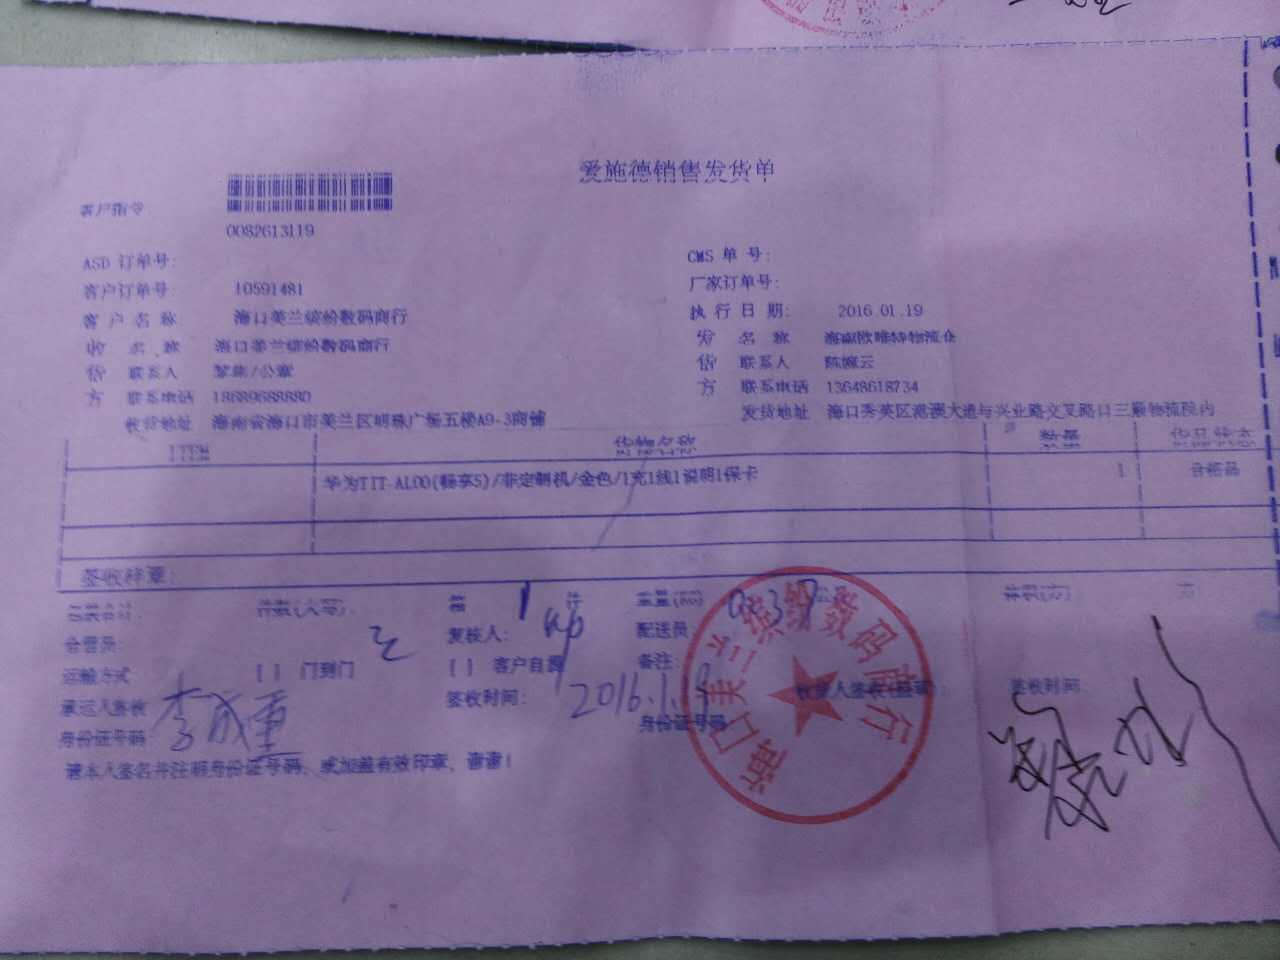 爱施德销售发货单
客户指令
0082613119
ASD 订单号:
CMS 单 号:
客户订单号: 10591481
厂家订单号:
客 户 名 称 海口美兰缤纷数码商行
执 行 日 期: 2016.01.19
收 名 称 海口美兰缤纷数码商行
发 名 称 海南欧唯特物流仓
货 联系人 /公章
货 联系人 陈 云
方 联系电话 18689688880
方 联系电话 13648618734
收货地址 海南省海口市美兰区明珠广场五楼A9-3商铺
发货地址 海口秀英区港澳大道与兴业路交叉路口三 物流院内
货物名称 数量
华为TIT-AL00(畅享5)/非定制机/金色/1充1线1说明1保卡 1 合格品
签收样章:
件数(大写): 箱 1 件 重量(KG) 0.37
仓管员: 复核人: 配送员
运输方式 [ ] 门到门 [ ] 客户自提 备注:
承运人签收 李 签收时间: 2016.1.19 签收时间:
身份证号码 身份证号码
请本人签名并注明身份证号码、或加盖有效印章，谢谢！
海口美兰缤纷数码商行